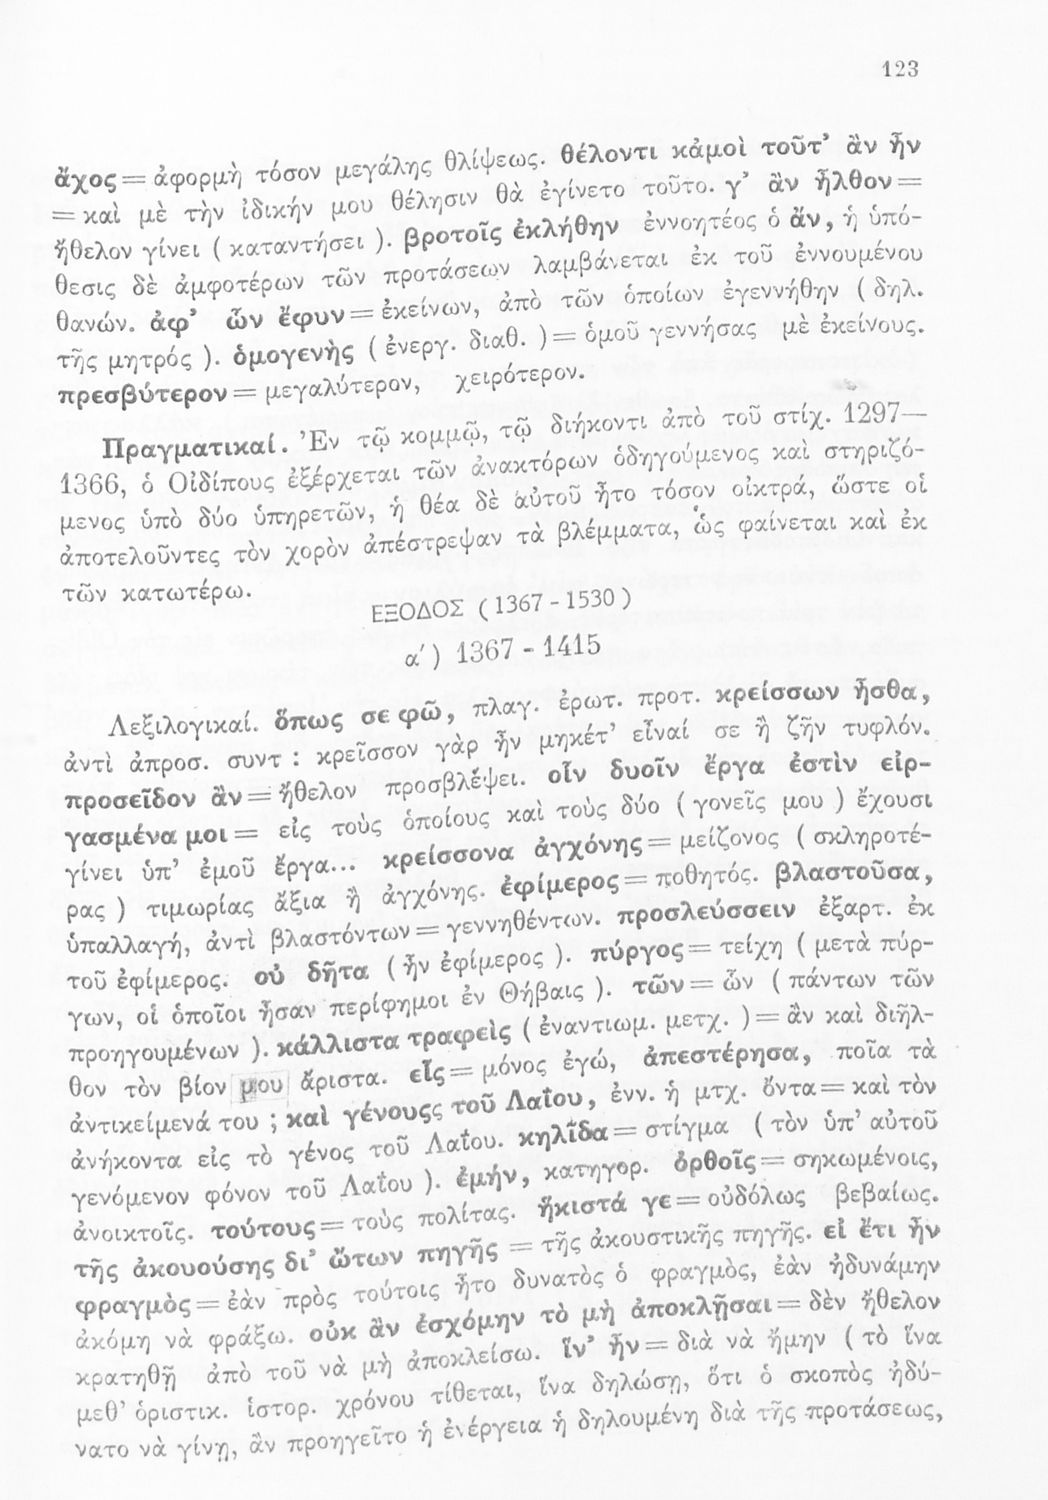 123
ἄχος = ἀφορμὴ τόσον μεγάλης θλίψεως. θέλοντι κἀμοὶ τοῦτ’ ἂν ἦν
= καὶ μὲ τὴν ἰδικήν μου θέλησιν θὰ ἐγίνετο τοῦτο. γ’ ἂν ἦλθον =
ἤθελον γίνει ( καταντήσει ). βροτοῖς ἐκλήθην ἐννοητέος ὁ ἄν, ἡ ὑπό-
θεσις δὲ ἀμφοτέρων τῶν προτάσεων λαμβάνεται ἐκ τοῦ ἐννουμένου
θανών. ἀφ’ ὧν ἔφυν = ἐκείνων, ἀπὸ τῶν ὁποίων ἐγεννήθην ( δηλ.
τῆς μητρός ). ὁμογενὴς ( ἐνεργ. διαθ. ) = ὁμοῦ γεννήσας μὲ ἐκείνους.
πρεσβύτερον = μεγαλύτερον, χειρότερον.
Πραγματικαί. Ἐν τῷ κομμῷ, τῷ διήκοντι ἀπὸ τοῦ στίχ. 1297—
1366, ὁ Οἰδίπους ἐξέρχεται τῶν ἀνακτόρων ὁδηγούμενος καὶ στηριζό-
μενος ὑπὸ δύο ὑπηρετῶν, ἡ θέα δὲ αὐτοῦ ἦτο τόσον οἰκτρά, ὥστε οἱ
ἀποτελοῦντες τὸν χορὸν ἀπέστρεψαν τὰ βλέμματα, ὡς φαίνεται καὶ ἐκ
τῶν κατωτέρω.
ΕΞΟΔΟΣ ( 1367 - 1530 )
α′ ) 1367 - 1415
Λεξιλογικαί. ὅπως σε φῶ, πλαγ. ἐρωτ. προτ. κρείσσων ἦσθα,
ἀντὶ ἀπροσ. συντ : κρεῖσσον γὰρ ἦν μηκέτ’ εἶναί σε ἢ ζῆν τυφλόν.
προσεῖδον ἂν = ἤθελον προσβλέψει. οἷν δυοῖν ἔργα ἐστὶν εἰρ-
γασμένα μοι = εἰς τοὺς ὁποίους καὶ τοὺς δύο ( γονεῖς μου ) ἔχουσι
γίνει ὑπ’ ἐμοῦ ἔργα... κρείσσονα ἀγχόνης = μείζονος ( σκληροτέ-
ρας ) τιμωρίας ἄξια ἢ ἀγχόνης. ἐφίμερος = ποθητός. βλαστοῦσα,
ὑπαλλαγή, ἀντὶ βλαστόντων = γεννηθέντων. προσλεύσσειν ἐξαρτ. ἐκ
τοῦ ἐφίμερος. οὐ δῆτα ( ἦν ἐφίμερος ). πύργος = τείχη ( μετὰ πύρ-
γων, οἱ ὁποῖοι ἦσαν περίφημοι ἐν Θήβαις ). τῶν = ὧν ( πάντων τῶν
προηγουμένων ). κάλλιστα τραφεὶς ( ἐναντιωμ. μετχ. ) = ἂν καὶ διῆλ-
θον τὸν βίον μου ἄριστα. εἷς = μόνος ἐγώ, ἀπεστέρησα, ποῖα τὰ
ἀντικείμενά του ; καὶ γένουςς τοῦ Λαΐου, ἐνν. ἡ μτχ. ὄντα = καὶ τὸν
ἀνήκοντα εἰς τὸ γένος τοῦ Λαΐου. κηλῖδα = στίγμα ( τὸν ὑπ’ αὐτοῦ
γενόμενον φόνον τοῦ Λαΐου ). ἐμήν, κατηγορ. ὀρθοῖς = σηκωμένοις,
ἀνοικτοῖς. τούτους = τοὺς πολίτας. ἥκιστά γε = οὐδόλως βεβαίως.
τῆς ἀκουούσης δι’ ὤτων πηγῆς = τῆς ἀκουστικῆς πηγῆς. εἰ ἔτι ἦν
φραγμὸς = ἐὰν πρὸς τούτοις ἦτο δυνατὸς ὁ φραγμὸς, ἐὰν ἠδυνάμην
ἀκόμη νὰ φράξω. οὐκ ἂν ἐσχόμην τὸ μὴ ἀποκλῇσαι = δὲν ἤθελον
κρατηθῇ ἀπὸ τοῦ νὰ μὴ ἀποκλείσω. ἵν’ ἦν = διὰ νὰ ἤμην ( τὸ ἵνα
μεθ’ ὁριστικ. ἱστορ. χρόνου τίθεται, ἵνα δηλώσῃ, ὅτι ὁ σκοπὸς ἠδύ-
νατο νὰ γίνῃ, ἂν προηγεῖτο ἡ ἐνέργεια ἡ δηλουμένη διὰ τῆς προτάσεως,